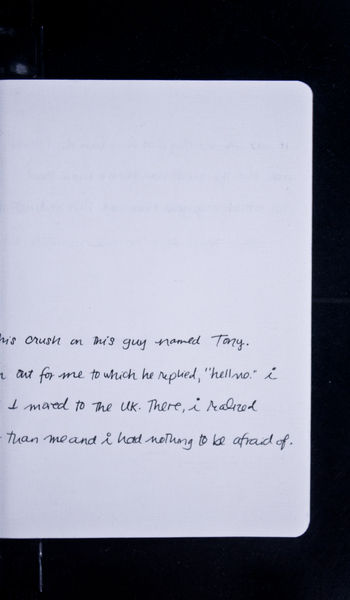 his crush on this guy named Tony.
out for me to which he replied, "hell no." i
I moved to the UK. There, i realized
than me and i had nothing to be afraid of.